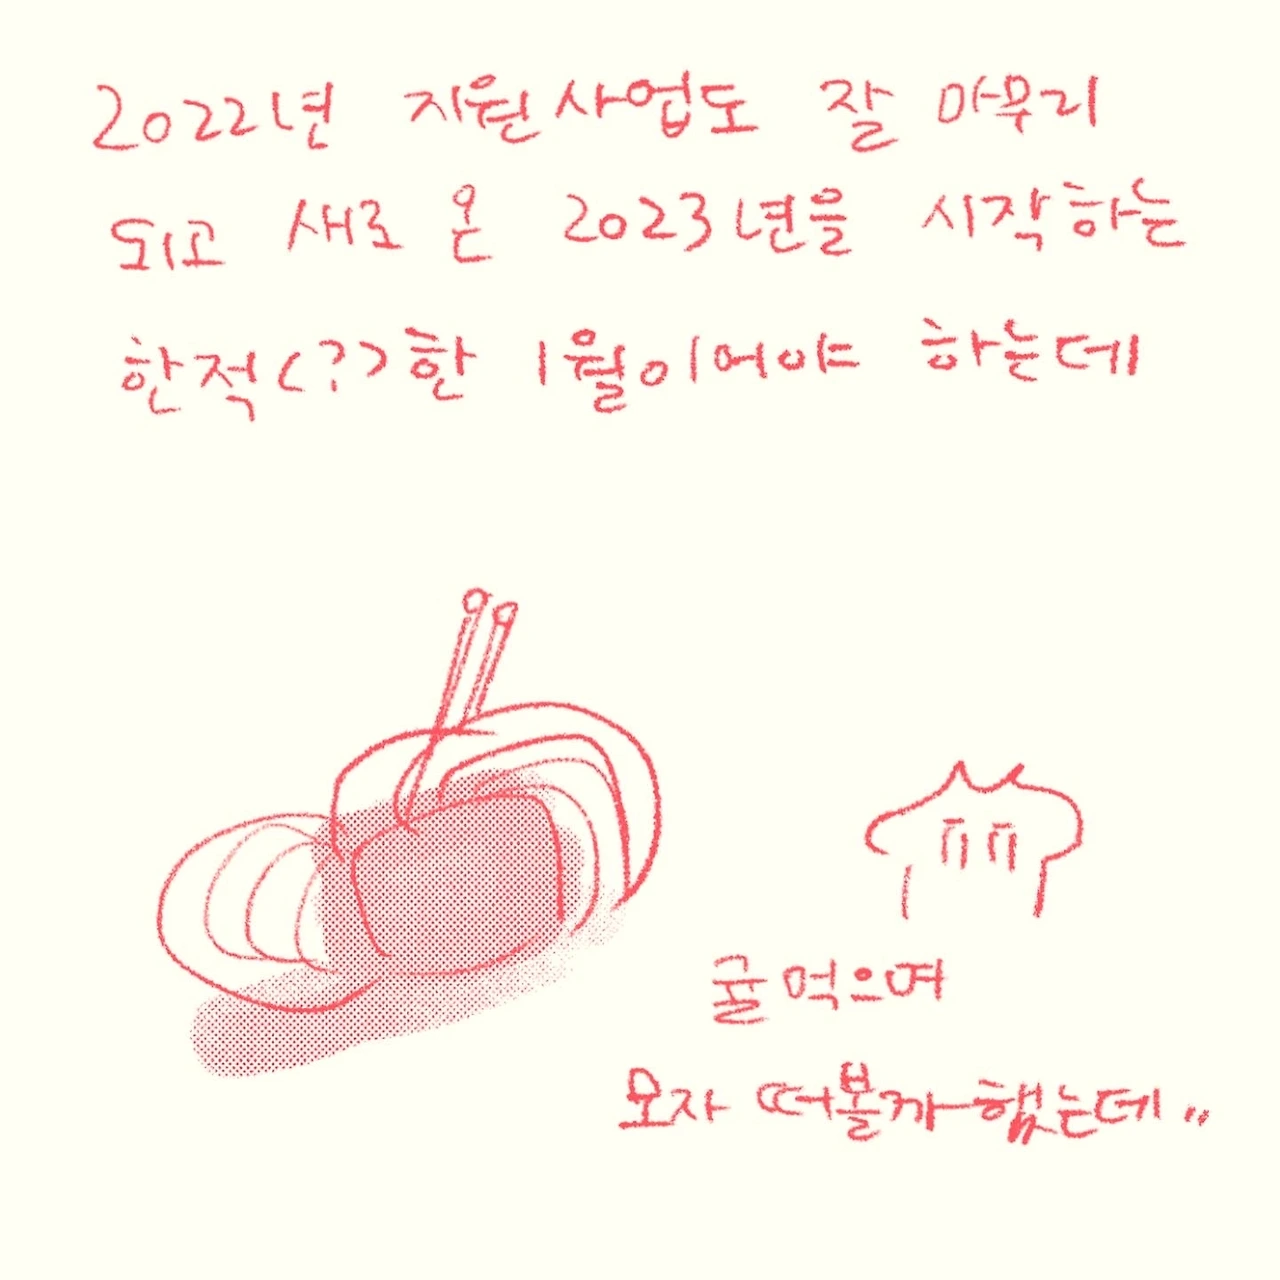 2022년 지원사업도 잘 마무리
되고 새로 온 2023년을 시작하는
한적(??)한 1월이어야 하는데
귤 먹으며
모자 떠볼까 했는데..